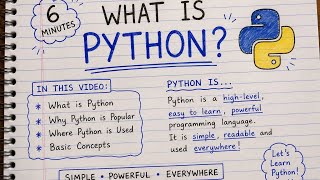 6
MINUTES
WHAT IS
PYTHON?
IN THIS VIDEO:
* What is Python
* Why Python is Popular
* Where Python is Used
* Basic Concepts
PYTHON IS...
Python is a high-level,
easy to learn, powerful
programming language.
It is simple, readable and
used everywhere!
Let's
Learn
Python!
SIMPLE • POWERFUL • EVERYWHERE